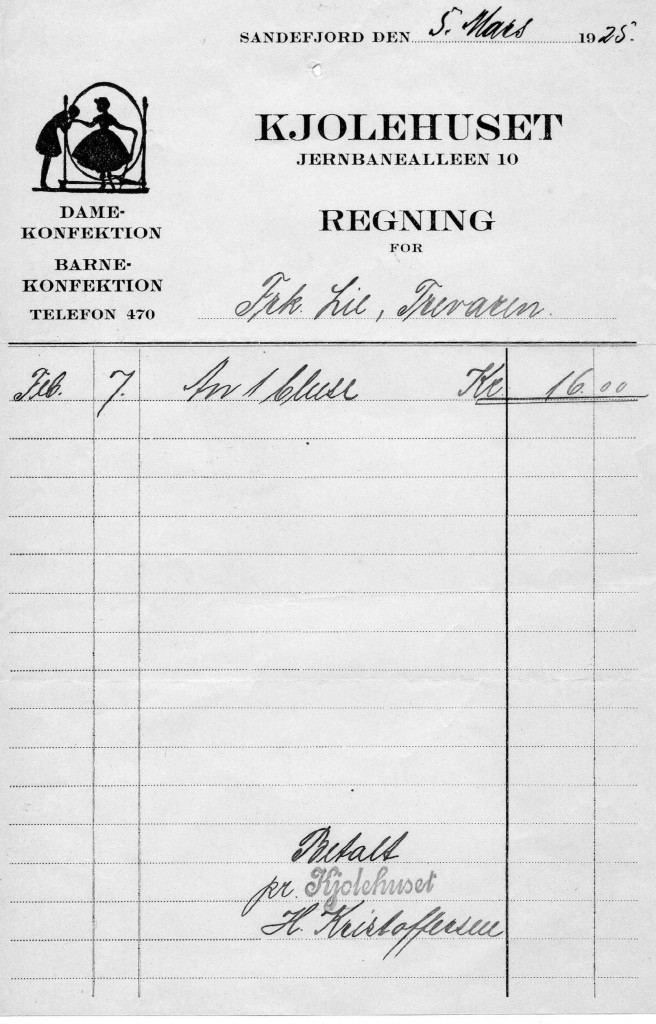 SANDEFJORD DEN 5. Mars 1925.
KJOLEHUSET
JERNBANEALLEEN 10
DAME-
KONFEKTION
BARNE-
KONFEKTION
TELEFON 470
REGNING
FOR
Frk. Lie, Trevaren.
Feb. 7. An 1 bluse Kr. 16.00
Betalt
pr. Kjolehuset
H. Kristoffersen